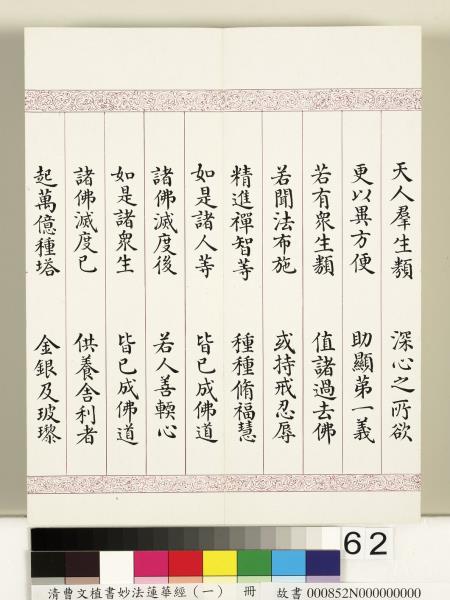 天人羣生類　深心之所欲
更以異方便　助顯第一義
若有衆生類　值諸過去佛
若聞法布施　或持戒忍辱
精進禪智等　種種脩福慧
如是諸人等　皆已成佛道
諸佛滅度後　若人善輭心
如是諸衆生　皆已成佛道
諸佛滅度已　供養舍利者
起萬億種塔　金銀及玻瓈
62
清曹文植書妙法蓮華經(一)　冊　故書 000852N000000000